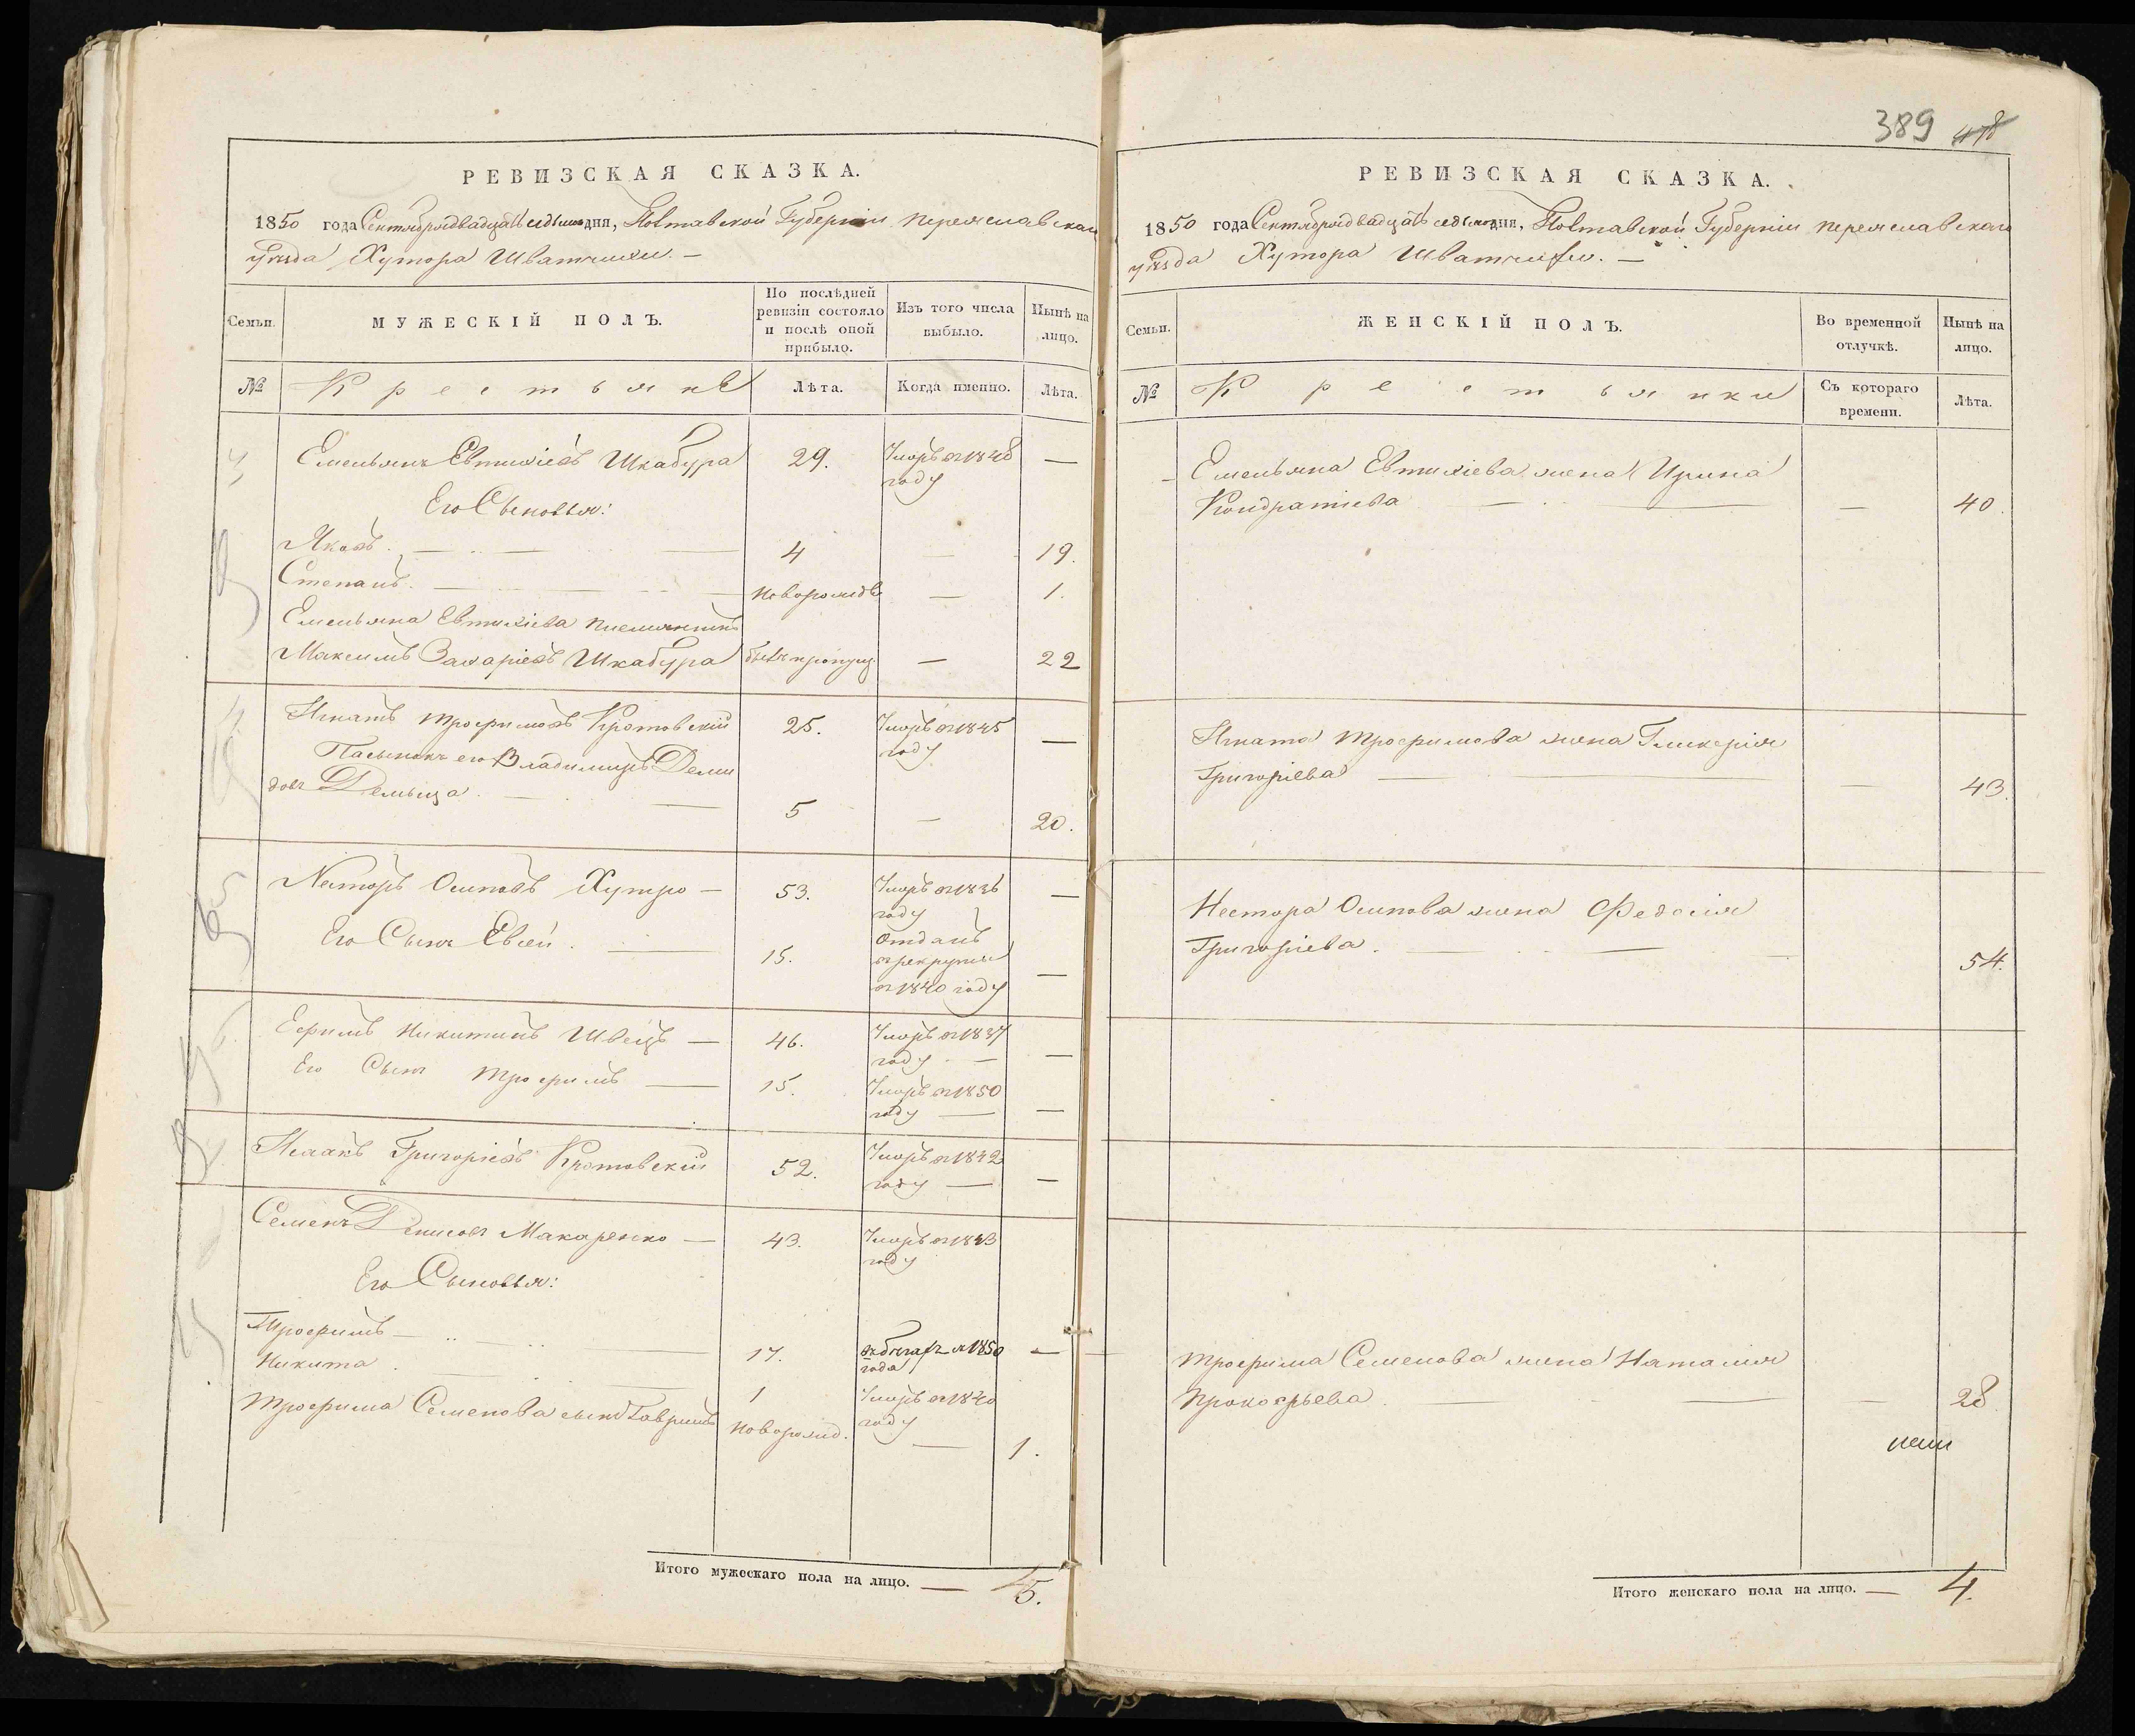 РЕВИЗСКАЯ СКАЗКА.
1850 года Сентября двадцать седьмаго дня, Полтавской Губерніи Переяславскаго
уѣзда Хутора
Семьи. МУЖЕСКІЙ ПОЛЪ. По послѣдней ревизіи состояло и послѣ оной прибыло. Изъ того числа выбыло. Нынѣ на лицо.
№ Крестьяне Лѣта. Когда именно. Лѣта.
Емельянъ Евтихіевъ Шкабура 29. Умеръ въ 1848 —
году
Его Сыновья:
Яковъ. 4 — 19.
Степанъ. Новорожд — 1.
Емельяна Евтихіева племянникъ
Максимъ Захаріевъ Шкабура былъ пропущ — 22
Игнатъ Трофимовъ Кротовскій 25. Умеръ въ 1845 —
году
Пасынокъ его Владимиръ Деми
довъ 5 — 20.
Несторъ Осиповъ Хутро — 53. Умеръ въ 1836 —
году
Его Сынъ Евсей. 15. Отданъ
въ рекруты —
въ 1840 году
Ефимъ Никитинъ Швецъ — 46. Умеръ въ 1837 —
году —
Его Сынъ Трофимъ — 15. Умеръ въ 1850
году — —
Исаакъ Григоріевъ Кротовскій 52. Умеръ въ 1842
году — —
Семенъ Денисовъ Макаренко — 43. Умеръ въ 1843
году
Его Сыновья:
Трофимъ — 17. въ бѣгахъ съ 1850 —
года
Никита. 1 Умеръ въ 1840
году
Трофима Семенова сынъ Гавріилъ Новорожд. — 1.
Итого мужескаго пола на лицо. — 5.
389 418
РЕВИЗСКАЯ СКАЗКА.
1850 года Сентября двадцать седьмаго дня, Полтавской Губерніи Переяславскаго
уѣзда Хутора
Семьи. ЖЕНСКІЙ ПОЛЪ. Во временной отлучкѣ. Нынѣ на лицо.
№ Крестьянки Съ котораго времени. Лѣта.
Емельяна Евтихіева жена Ирина
Кондратіева — 40
Игната Трофимова жена Гликерія
Григоріева — 43.
Нестора Осипова жена Федосія
Григоріева. 54.
Трофима Семенова жена Наталія
Прокофьева. — 28.
Итого женскаго пола на лицо. — 4.